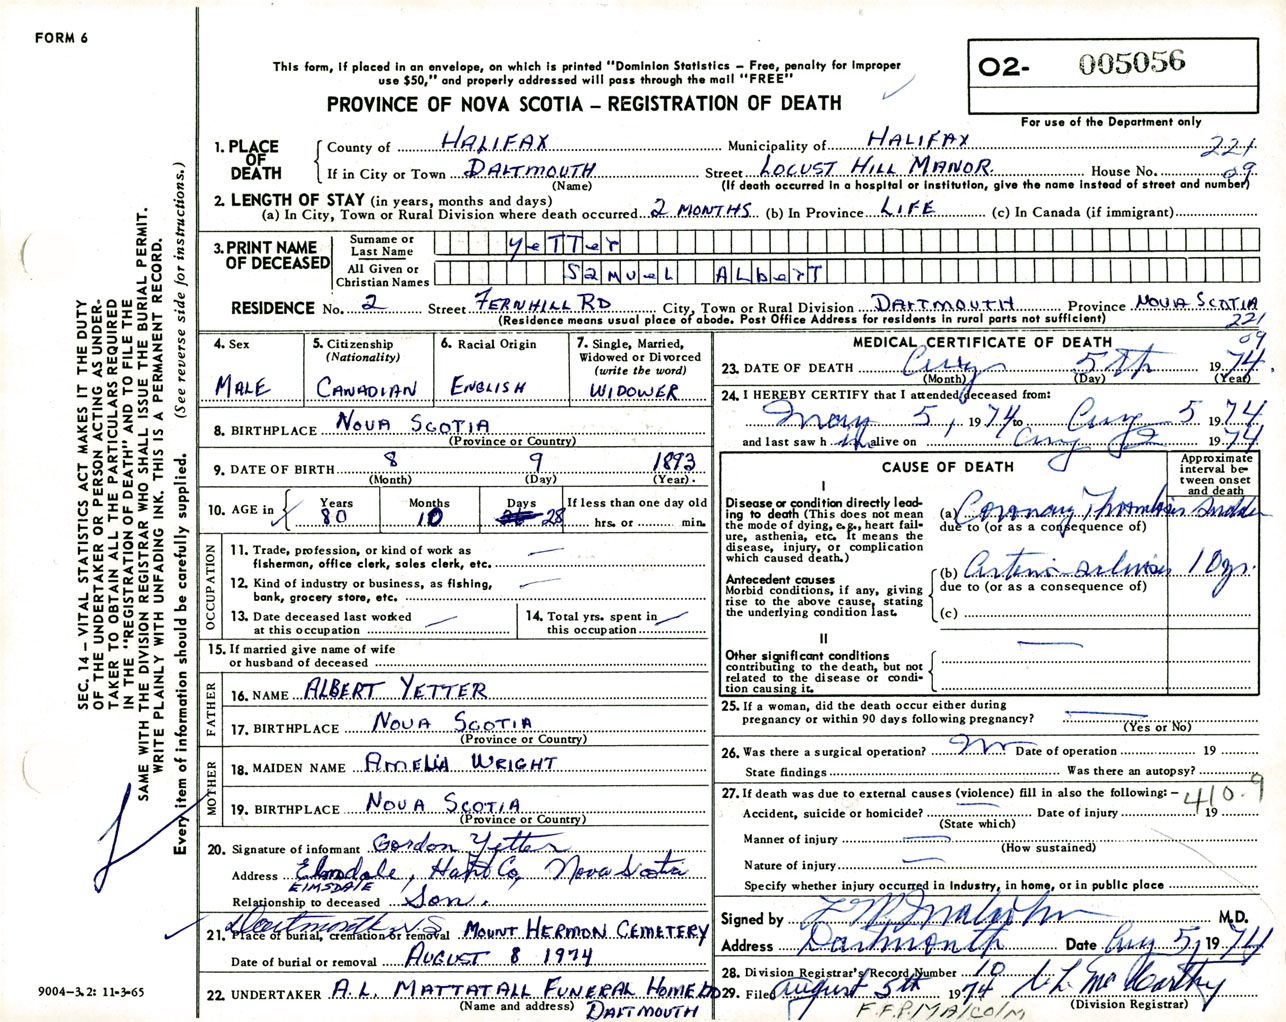 FORM 6
This form, if placed in an envelope, on which is printed "Dominion Statistics – Free, penalty for improper
use $50," and properly addressed will pass through the mail "FREE"
PROVINCE OF NOVA SCOTIA – REGISTRATION OF DEATH
O2- 005056
For use of the Department only
1. PLACE OF DEATH
County of HALIFAX Municipality of HALIFAX
221
If in City or Town DARTMOUTH Street LOCUST HILL MANOR House No. 09
(Name) (If death occurred in a hospital or institution, give the name instead of street and number)
2. LENGTH OF STAY (in years, months and days)
(a) In City, Town or Rural Division where death occurred 2 MONTHS (b) In Province LIFE (c) In Canada (if immigrant)
3. PRINT NAME OF DECEASED
Surname or Last Name Yetter
All Given or Christian Names Samuel Albert
RESIDENCE No. 2 Street FERNHILL RD City, Town or Rural Division DARTMOUTH Province NOVA SCOTIA
(Residence means usual place of abode. Post Office Address for residents in rural parts not sufficient)
221
09
4. Sex MALE
5. Citizenship (Nationality) CANADIAN
6. Racial Origin ENGLISH
7. Single, Married, Widowed or Divorced (write the word) WIDOWER
8. BIRTHPLACE NOVA SCOTIA
(Province or Country)
9. DATE OF BIRTH 8 9 1893
(Month) (Day) (Year).
10. AGE in Years 80 Months 10 Days 28 If less than one day old hrs. or min.
OCCUPATION
11. Trade, profession, or kind of work as fisherman, office clerk, sales clerk, etc. —
12. Kind of industry or business, as fishing, bank, grocery store, etc. —
13. Date deceased last worked at this occupation —
14. Total yrs. spent in this occupation —
15. If married give name of wife or husband of deceased
FATHER
16. NAME ALBERT YETTER
17. BIRTHPLACE NOVA SCOTIA
(Province or Country)
MOTHER
18. MAIDEN NAME AMELIA WRIGHT
19. BIRTHPLACE NOVA SCOTIA
(Province or Country)
20. Signature of informant Gordon Yetter
Address Elmsdale, Hants Co, Nova Scotia
ElMSDALE
Relationship to deceased Son.
Dartmouth N.S
21. Place of burial, cremation or removal MOUNT HERMON CEMETERY
Date of burial or removal AUGUST 8 1974
22. UNDERTAKER A.L. MATTATALL FUNERAL HOME LD
(Name and address) DARTMOUTH
MEDICAL CERTIFICATE OF DEATH
23. DATE OF DEATH Aug 5th 1974.
(Month) (Day) (Year)
24. I HEREBY CERTIFY that I attended deceased from:
May 5, 1974 to Aug 5 1974
and last saw him alive on Aug 1974
CAUSE OF DEATH
Approximate interval between onset and death
I
Disease or condition directly leading to death (This does not mean the mode of dying, e.g., heart failure, asthenia, etc. It means the disease, injury, or complication which caused death.)
(a) Coronary Thrombosis Sudden
due to (or as a consequence of)
Antecedent causes
Morbid conditions, if any, giving rise to the above cause, stating the underlying condition last.
(b) 10 yrs.
due to (or as a consequence of)
(c)
II
Other significant conditions
contributing to the death, but not related to the disease or condition causing it. —
25. If a woman, did the death occur either during pregnancy or within 90 days following pregnancy? —
(Yes or No)
26. Was there a surgical operation? No Date of operation 19
State findings Was there an autopsy?
27. If death was due to external causes (violence) fill in also the following: – 410.9
Accident, suicide or homicide? — Date of injury 19
(State which)
Manner of injury —
(How sustained)
Nature of injury —
Specify whether injury occurred in industry, in home, or in public place
Signed by M.D.
Address Dartmouth Date Aug 5, 1974
28. Division Registrar's Record Number 10
29. Filed August 5th 1974 McCarthy
(Division Registrar)
F.F.P. MALCOLM
SEC. 14 – VITAL STATISTICS ACT MAKES IT THE DUTY
OF THE UNDERTAKER OR PERSON ACTING AS UNDER-
TAKER TO OBTAIN ALL THE PARTICULARS REQUIRED
IN THE "REGISTRATION OF DEATH" AND TO FILE THE
SAME WITH THE DIVISION REGISTRAR WHO SHALL ISSUE THE BURIAL PERMIT.
WRITE PLAINLY WITH UNFADING INK. THIS IS A PERMANENT RECORD.
Every item of information should be carefully supplied. (See reverse side for instructions.)
9004–3.2: 11-3-65